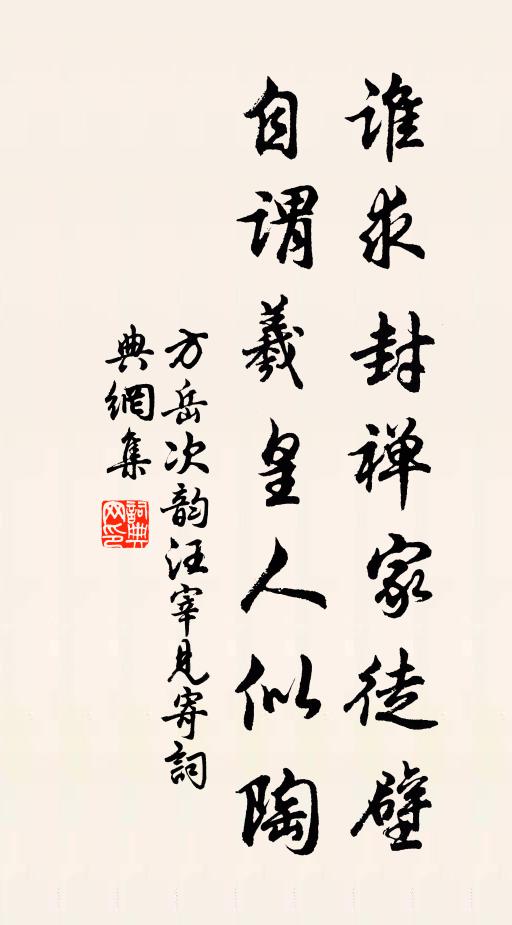 谁求封禅家徒壁
自谓羲皇人似陶
方岳次韵汪宰见寄词
典網集
詞典网印